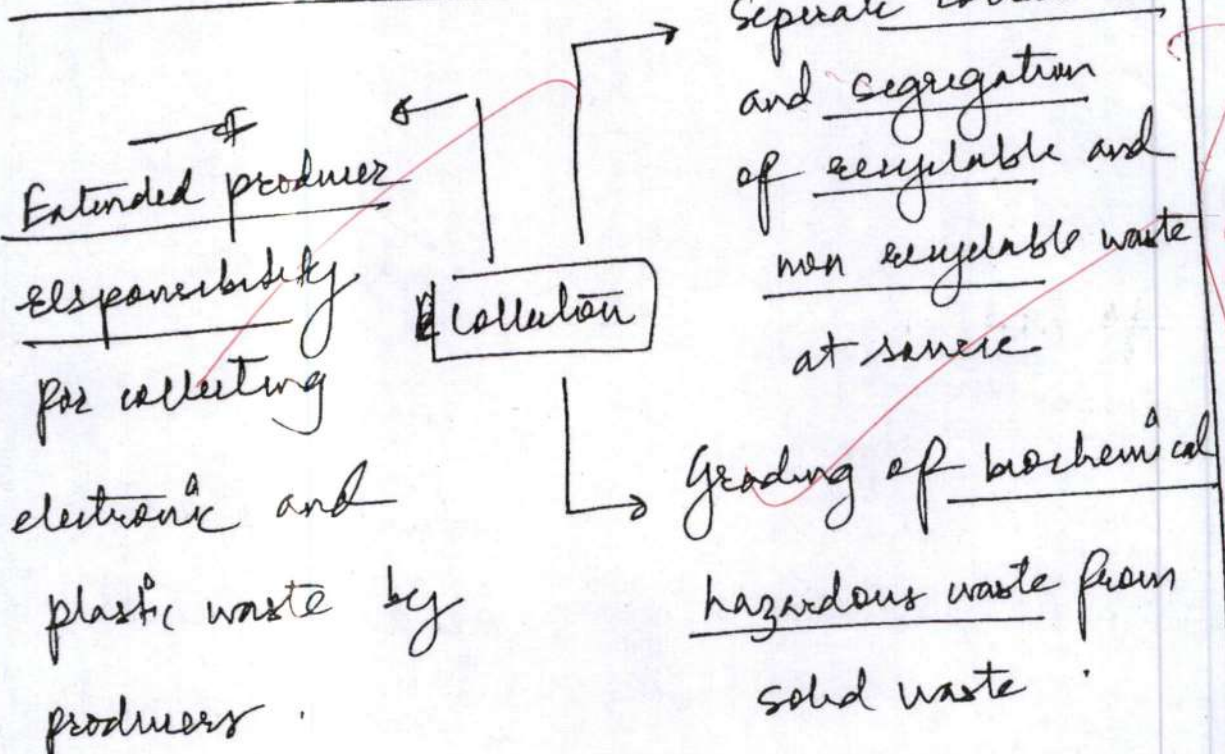 Extended producer
responsibility
for collecting
electronic and
plastic waste by
producers.
Collection
Seperate
and segregation
of recyclable and
non recyclable waste
at source.
Grading of biochemical
hazardous waste from
solid waste.